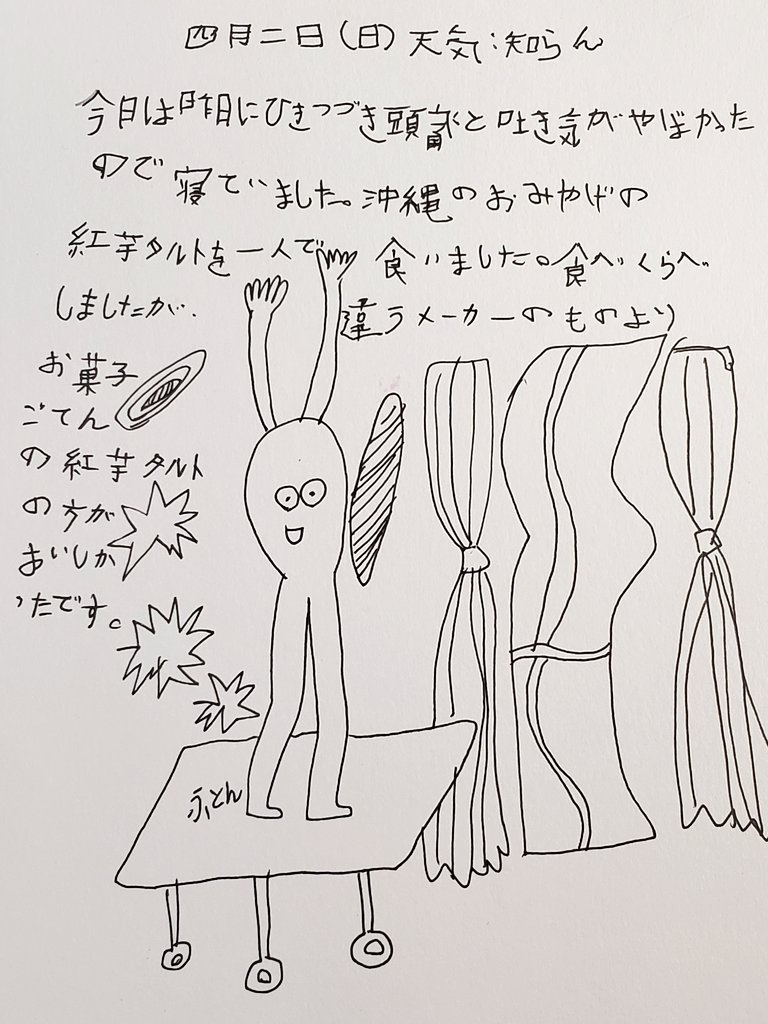 四月二日（日）天気：知らん
今日は昨日にひきつづき頭痛と吐き気がやばかった
ので寝ていました。沖縄のおみやげの
紅芋タルトを一人で食いました。食べくらべ
しましたが、違うメーカーのものより
お菓子
ごてん
の紅芋タルト
の方が
おいしか
ったです。
ふとん